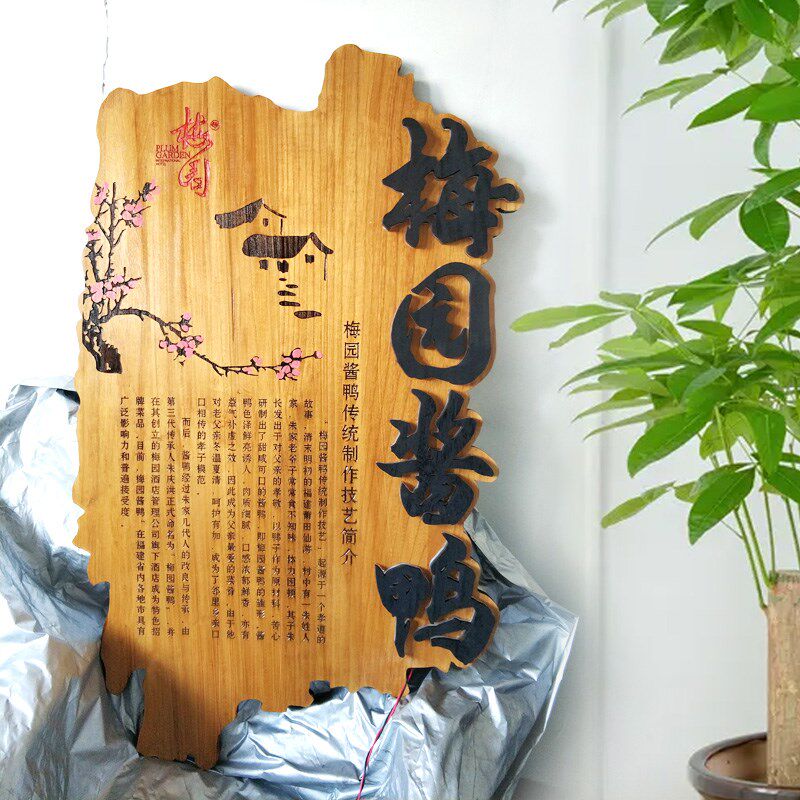 梅园酱鸭
梅园
PLUM
GARDEN
INTERNATIONAL
HOTEL
梅园酱鸭传统制作技艺简介
“梅园酱鸭传统制作技艺”起源于一个孝道的
故事，清末明初的福建莆田仙游，村中有一朱姓人
家，朱家老爷子常常食不知味，体力困顿，其子朱
长发出于对父亲的孝敬，以鸭子作为原材料，苦心
研制出了甜咸可口的酱鸭，即梅园酱鸭的雏形，酱
鸭色泽鲜亮诱人，肉质细腻，口感浓郁鲜香，亦有
益气补虚之效，因此成为父亲最爱的菜肴，由于他
对老父亲冬温夏清，呵护有加，成为了邻里乡亲口
口相传的孝子模范。
而后，酱鸭经过朱家几代人的改良与传承，由
第三代传承人朱庆洪正式命名为“梅园酱鸭”，并
在其创立的梅园酒店管理公司旗下酒店成为特色招
牌菜品，目前，“梅园酱鸭”在福建省内各地市具有
广泛影响力和普遍接受度。